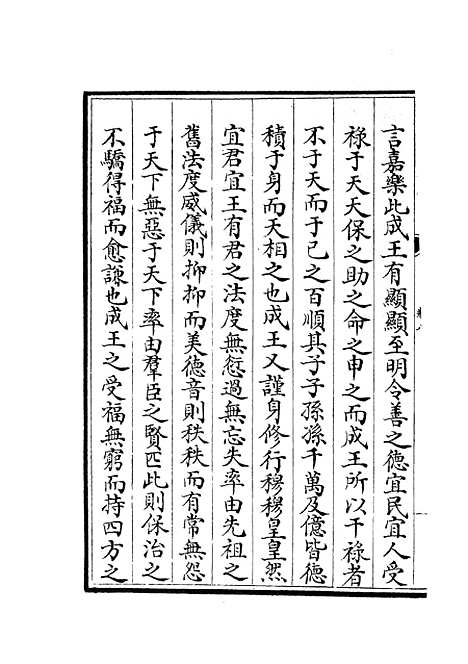 言嘉樂此成王有顯顯至明令善之德宜民宜人受
祿于天天保之助之命之申之而成王所以干祿者
不于天而于已之百順其子子孫孫千萬及億皆德
積于身而天相之也成王又謹身修行穆穆皇皇然
宜君宜王有君之法度無愆過無忘失率由先祖之
舊法度威儀則抑抑而美德音則秩秩而有常無怨
于天下無惡于天下率由羣臣之賢匹此則保治之
不驕得福而愈謙也成王之受福無窮而持四方之